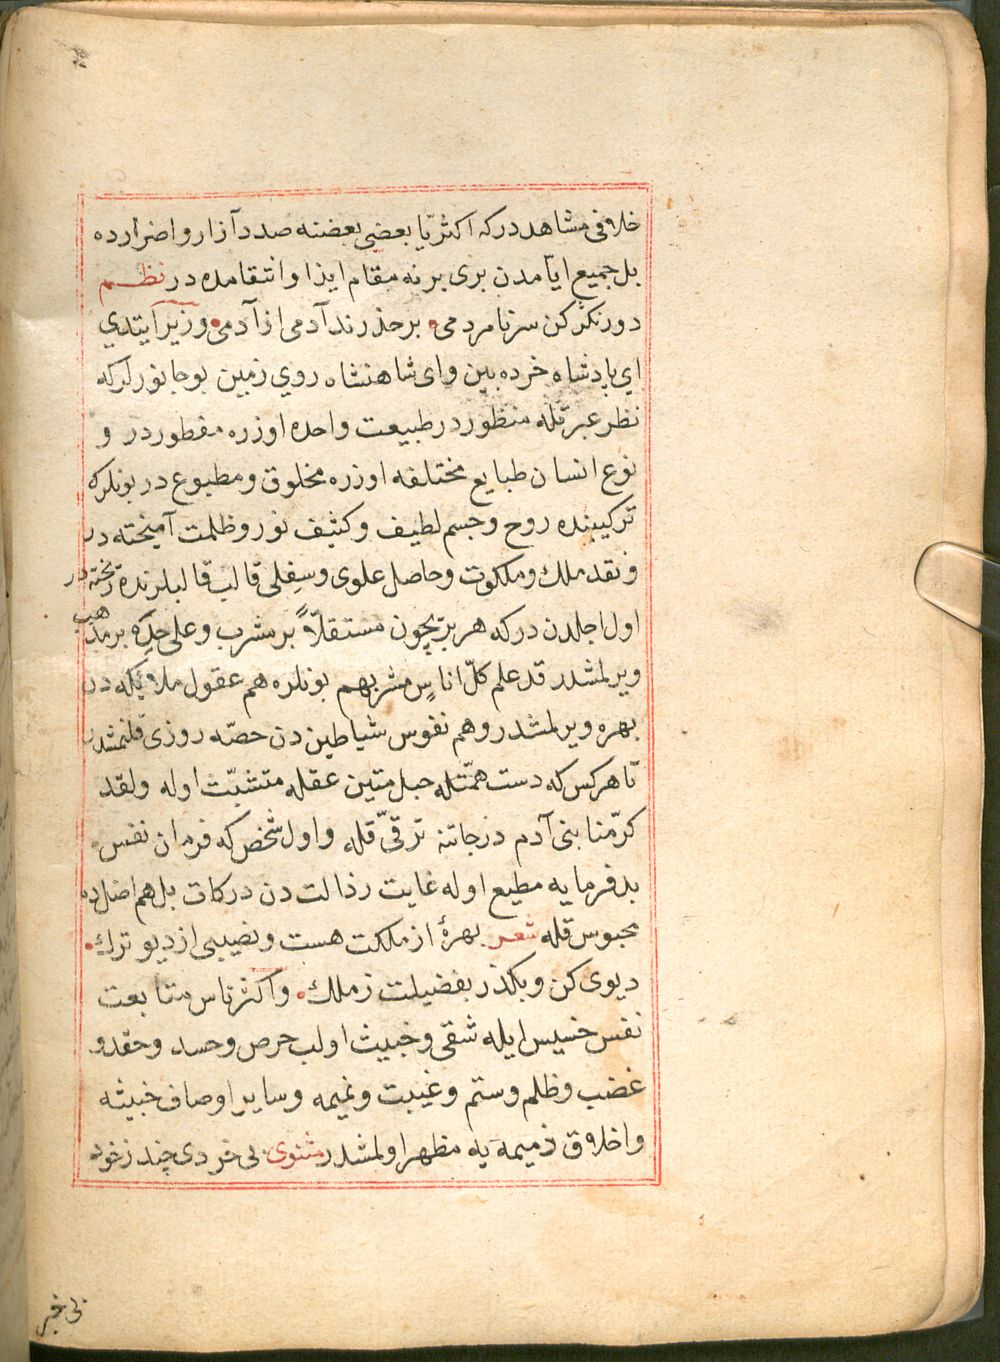 خلافی مشاهد در که اکثریّا بعضی بعضنه صدد آزار واضرارده
بل جمیع ایّامدن بری برنه مقام ایذا وانتقامده در نظـــم
دور نکر کن سر نامردمی • بر حذرند آدمی از آدمی • وزیر آیتدی
ای پادشاه خرده بین وای شاهنشاه روی زمین بو جانورلر که
نظر عبرتله منظور در طبیعت واحده اوزره مفطور در و
نوع انسان طبایع مختلفه اوزره مخلوق ومطبوع در بونلرکه
ترکیبنده روح وجسم لطیف وکثیف نور وظلمت آمیخته در
ونقد ملک وملکوت وحاصل علوی وسفلی قالب قالبلرنده ریخته در
اول اجلدن در که هر بریچون مستقلاًّ بر مشرب وعلی حده بر مذهب
ویرلمشدر قد علم کلّ اناسٍ مشربهم بونلره هم عقول ملائکه دن
بهره ویرلمشدر وهم نفوس شیاطین دن حصّه روزی قلنمشدر
تا هر کس که دست همّتله حبل متین عقله متشبّث اوله ولقد
کرّمنا بنی آدم درجاتنه ترقّی قله واول شخص که فرمان نفس
بد فرمایه مطیع اوله غایت رذالت دن درکات بل هم اضلده
محبوس قله شعر بهرهٔ از ملکت هست ونصیبی از دیو ترک •
دیوی کن وبکذر بفضیلت ز ملک • واکثر ناس متابعت
نفس خسیس ایله شقی وخبیث اولب حرص وحسد وحقد و
غضب وظلم وستم وغیبت ونمیمه وسایر اوصاف خبیثه
واخلاق ذمیمه یه مظهر اولمشدر مثنوی بی خردی چند ز خود
بی خبر